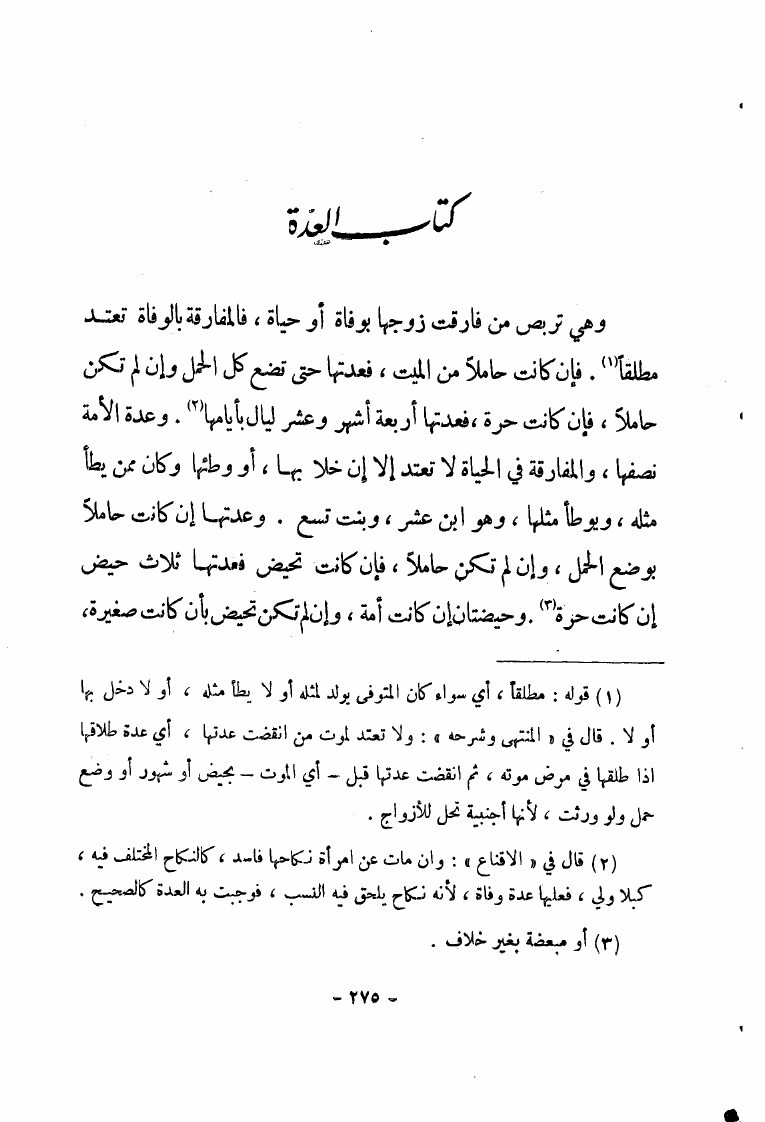 كتاب العدّة
وهي تربص من فارقت زوجها بوفاة أو حياة ، فالمفارقة بالوفاة تعتد
مطلقاً(١) . فإن كانت حاملاً من الميت ، فعدتها حتى تضع كل الحمل وإن لم تكن
حاملاً ، فإن كانت حرة ،فعدتها أربعة أشهر وعشر ليال بأيامها(٢) . وعدة الأمة
نصفها ، والمفارقة في الحياة لا تعتد إلا إن خلا بها ، أو وطئها وكان ممن يطأ
مثله ، ويوطأ مثلها ، وهو ابن عشر ، وبنت تسع . وعدتها إن كانت حاملاً
بوضع الحمل ، وإن لم تكن حاملاً ، فإن كانت تحيض فعدتها ثلاث حيض
إن كانت حرة(٣) .وحيضتان إن كانت أمة ، وإن لم تكن تحيض بأن كانت صغيرة،
(١) قوله : مطلقاً ، أي سواء كان المتوفى يولد لمثله أو لا يطأ مثله ، أو لا دخل بها
أو لا . قال في « المنتهى وشرحه » : ولا تعتد لموت من انقضت عدتها ، أي عدة طلاقها
اذا طلقها في مرض موته ، ثم انقضت عدتها قبل – أي الموت – بحيض أو شهور أو وضع
حمل ولو ورثت ، لأنها أجنبية تحل للأزواج .
(٢) قال في « الاقناع » : وان مات عن امرأة نكاحها فاسد ، كالنكاح المختلف فيه ،
كبلا ولي ، فعليها عدة وفاة ، لأنه نكاح يلحق فيه النسب ، فوجبت به العدة كالصحيح .
(٣) أو مبعضة بغير خلاف .
- ٢٧٥ -